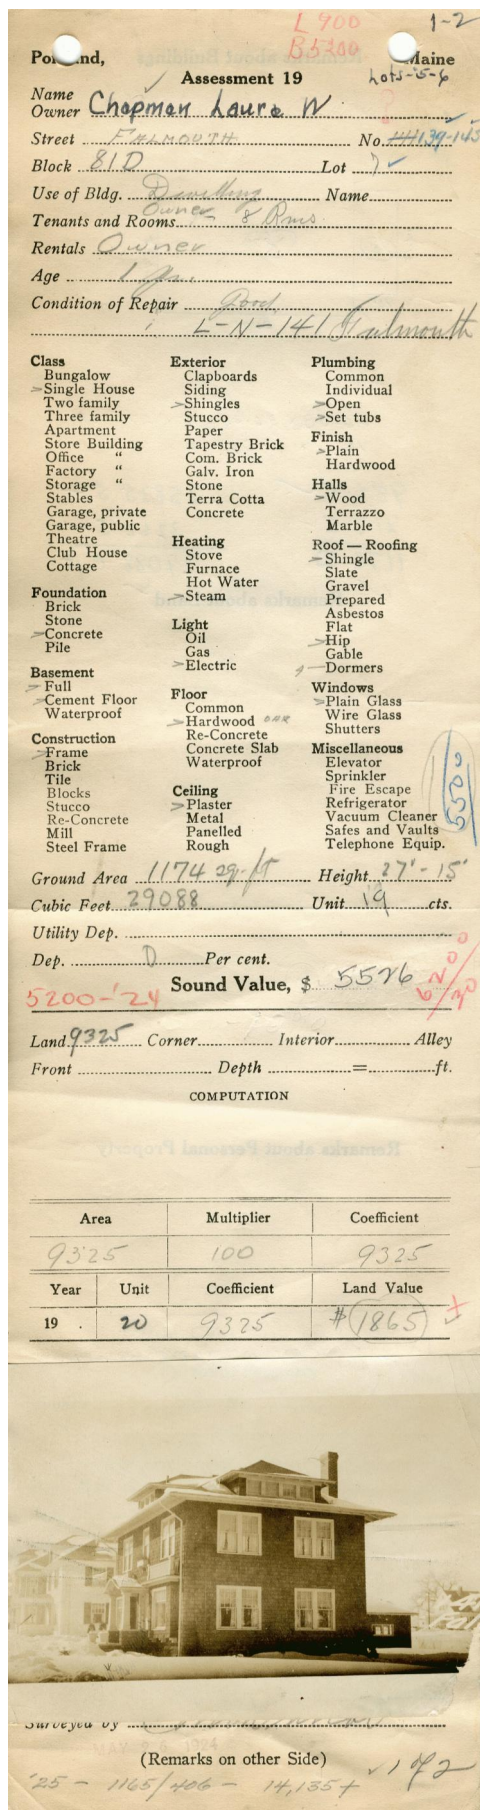 L 900
B5200
1-2
Portland, Maine
Assessment 19
Lots-5-6
Name
Owner Chapman Laura W
Street FALMOUTH No. 139-143
Block 81D Lot 7
Use of Bldg. Dwelling Name
Owner
Tenants and Rooms - 8 Rms
Rentals Owner
Age 1 yr.
Condition of Repair Good
L-N-141 Falmouth
Class
Bungalow
Single House
Two family
Three family
Apartment
Store Building
Office "
Factory "
Storage "
Stables
Garage, private
Garage, public
Theatre
Club House
Cottage
Foundation
Brick
Stone
Concrete
Pile
Basement
Full
Cement Floor
Waterproof
Construction
Frame
Brick
Tile
Blocks
Stucco
Re-Concrete
Mill
Steel Frame
Exterior
Clapboards
Siding
Shingles
Stucco
Paper
Tapestry Brick
Com. Brick
Galv. Iron
Stone
Terra Cotta
Concrete
Heating
Stove
Furnace
Hot Water
Steam
Light
Oil
Gas
Electric
Floor
Common
Hardwood OAK
Re-Concrete
Concrete Slab
Waterproof
Ceiling
Plaster
Metal
Panelled
Rough
Plumbing
Common
Individual
Open
Set tubs
Finish
Plain
Hardwood
Halls
Wood
Terrazzo
Marble
Roof — Roofing
Shingle
Slate
Gravel
Prepared
Asbestos
Flat
Hip
Gable
Dormers
Windows
Plain Glass
Wire Glass
Shutters
Miscellaneous
Elevator
Sprinkler
Fire Escape
Refrigerator
Vacuum Cleaner
Safes and Vaults
Telephone Equip.
5500
Ground Area 1174 sq-ft Height 27'-15'
Cubic Feet 29088 Unit 19 cts.
Utility Dep.
Dep. D Per cent.
Sound Value, $ 5526
6200/30
5200-'24
Land 9325 Corner Interior Alley
Front Depth = ft.
COMPUTATION
Remarks about Personal Property
Area Multiplier Coefficient
9325 100 9325
Year Unit Coefficient Land Value
19 . 20 9325 $1865
Surveyed by
MAY 26 1924
(Remarks on other Side)
'25 - 1165/406 - 14,135+
1 of 2